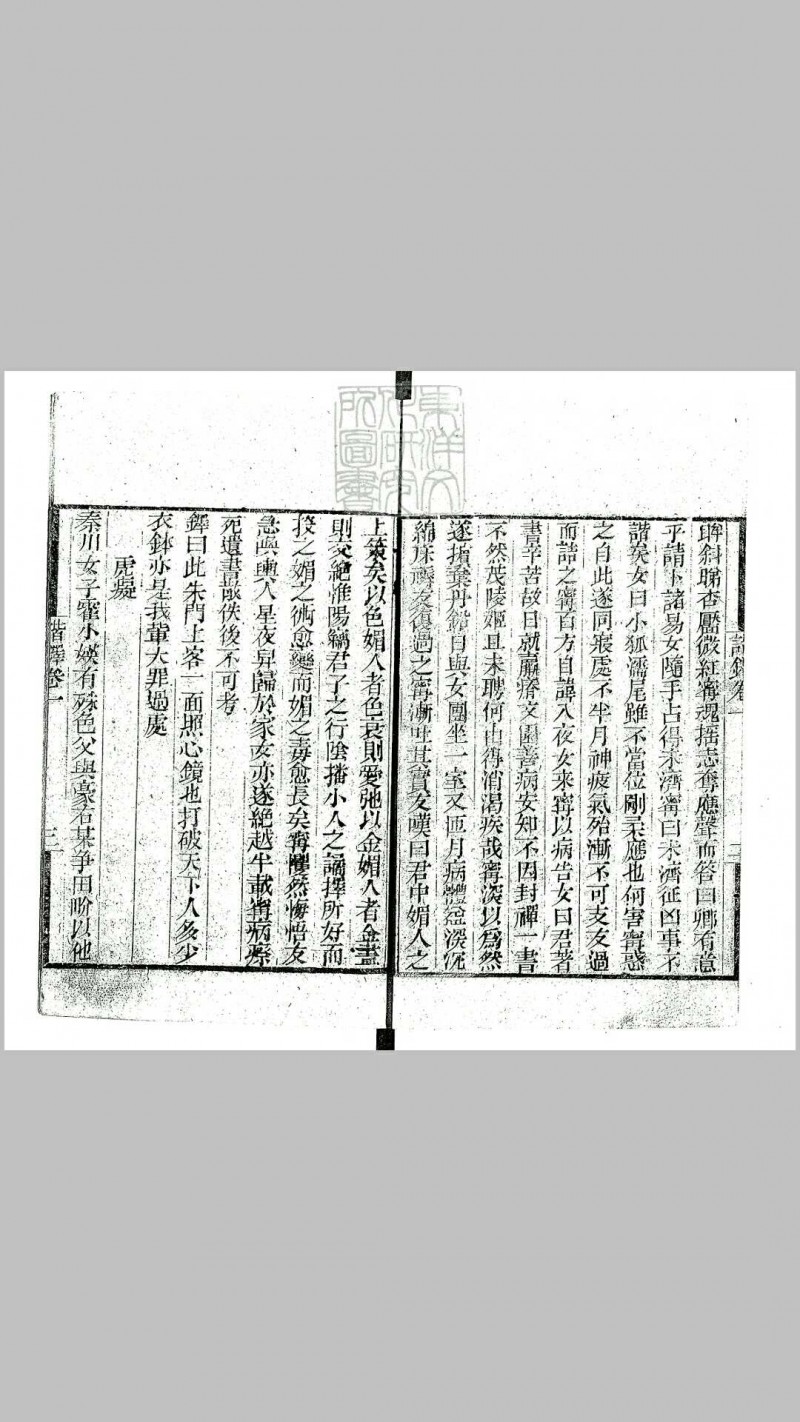 眸斜睇杏靨微紅甯魂搖志奪應聲而答曰卿有意
乎請卜諸易女隨手占得未濟甯曰未濟征凶事不
諧矣女曰小狐濡尾雖不當位剛柔應也何害甯惑
之自此遂同寢處不半月神疲氣殆漸不可支友過
而詰之甯百方自諱入夜女来甯以病告女曰君著
書辛苦故日就羸瘠文園善病安知不因封禪一書
不然茂陵姬且未聘何由得消渴疾哉甯深以為然
遂損棄丹鉛日與女團坐一室又匝月病體益深沉
綿床褥友復過之甯漸吐其實友嘆曰君中媚人之
上策矣以色媚人者色衰則愛弛以金媚人者金盡
則交絶惟陽竊君子之行陰播小人之謀擇所好而
投之媚之術愈變而媚之毒愈長矣甯矍然悔悟友
急與輿人星夜舁歸於家女亦遂絶越半載甯病瘵
死遺書散佚後不可考
鐸曰此朱門上客一面照心鏡也打破天下人多少
衣鉢亦是我輩大罪過處
虎癡
秦川女子霍小媖有殊色父與豪右某爭田吩以他
諧鐸卷一
三